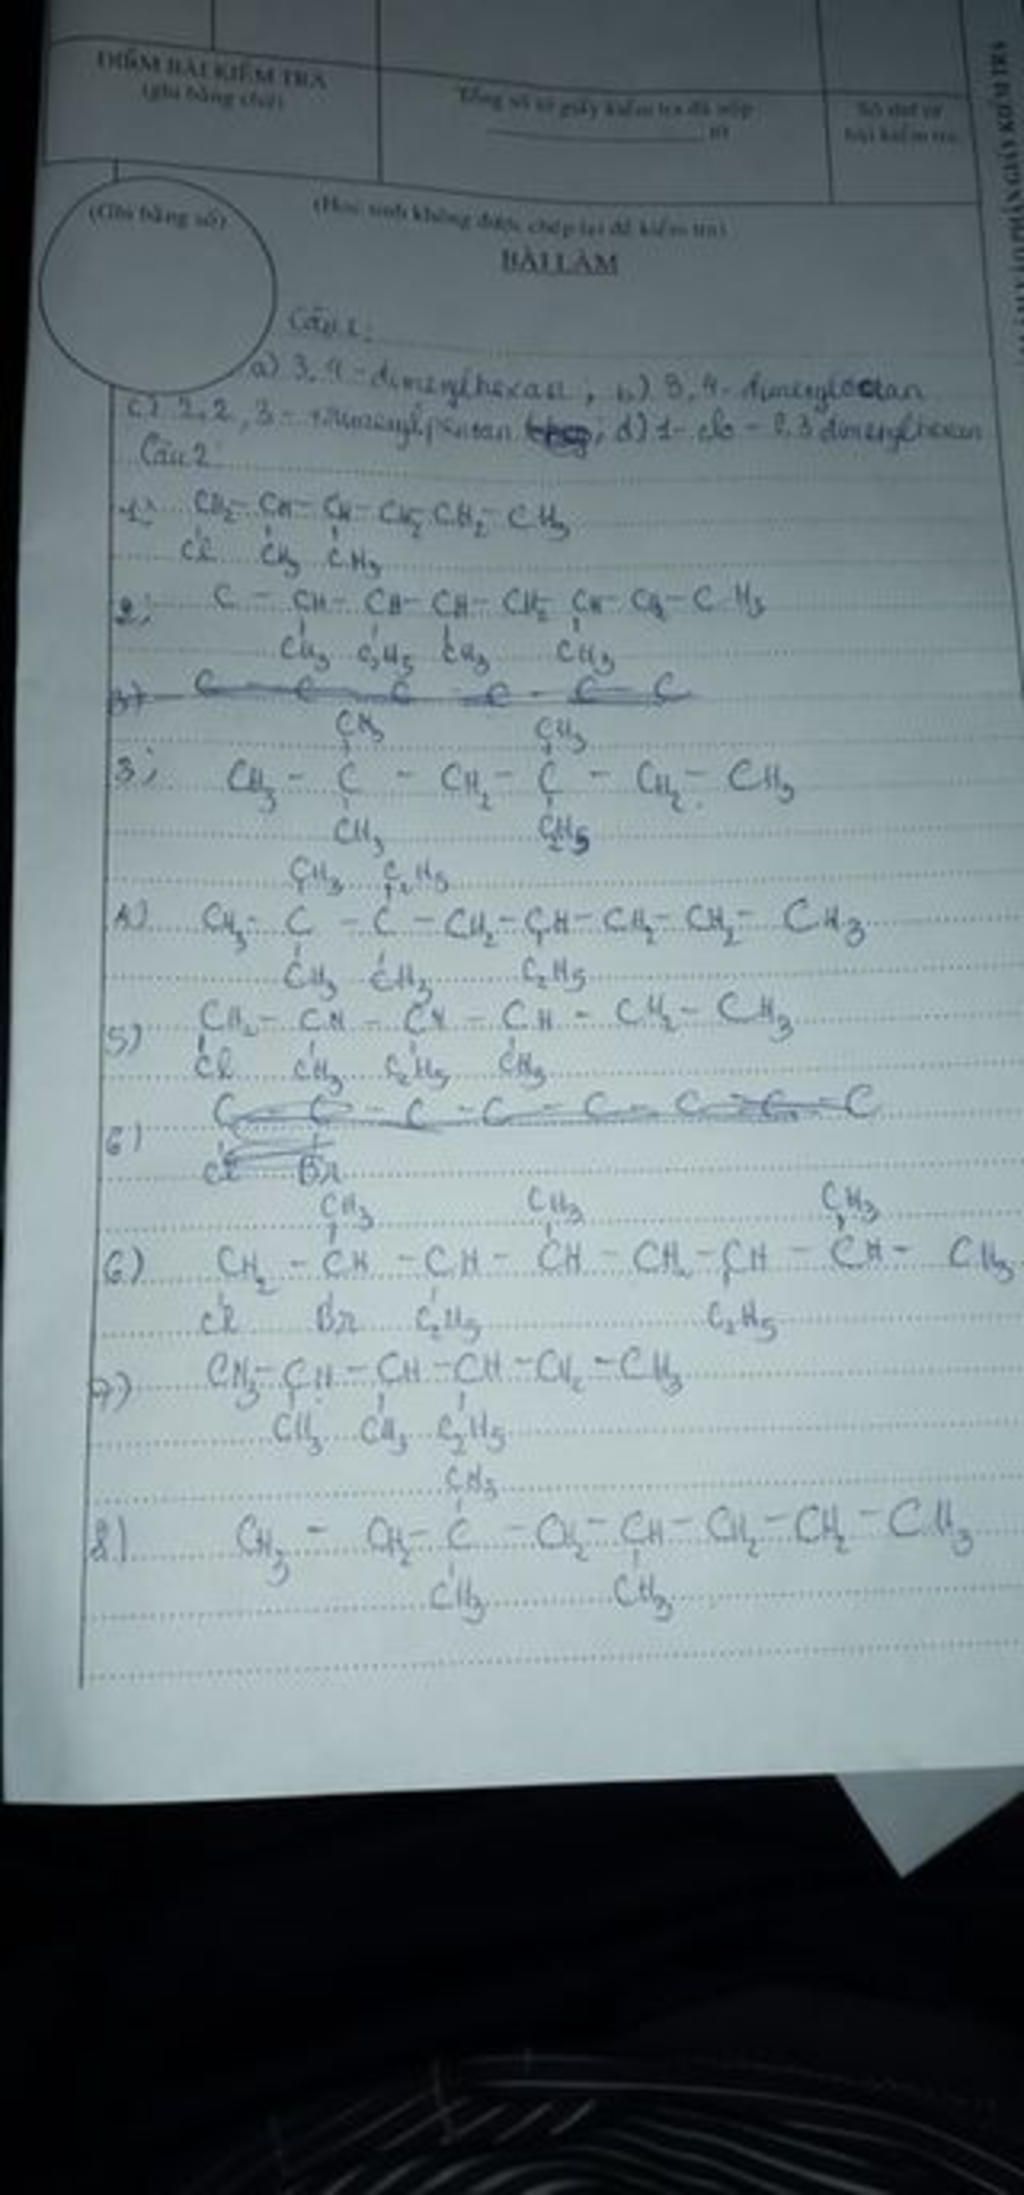 ĐIỂM BÀI KIỂM TRA
(ghi bằng chữ)
Tổng số tờ giấy kiểm tra đã nộp
tờ
Số thứ tự
bài kiểm tra
(Ghi bằng số)
(Học sinh không được chép lại đề kiểm tra)
BÀI LÀM
Câu 1:
a) 3,4-dimenylhexan, b) 3,4-dimenyloctan
c) 2,2,3- pentan, d) 1-clo-2,3 dimenylhexan
Câu 2
1) CH2- CH- CH- CH2- CH2- CH3
Cl CH3 CH3
2) C - CH- CH- CH- CH2- CH- CH2- CH3
CH3 C2H5 CH3 CH3
3) C - C - C - C - C - C
CH3 CH3
3) CH3 - C - CH2 - C - CH2 - CH3
CH3 C2H5
CH3 C2H5
4) CH3- C - C - CH2- CH- CH2- CH2- CH3
CH3 CH3 C2H5
5) CH2- CH - CH - CH - CH2- CH3
Cl CH3 C2H5 CH3
6) C - C - C - C - C - C - C - C
Cl Br
CH3 CH3 CH3
6) CH2 - CH - CH - CH - CH2 - CH - CH - CH3
Cl Br C2H5 C2H5
7) CH3- CH - CH - CH - CH2 - CH3
CH3 CH3 C2H5
CH3
8) CH3 - CH2- C - CH2- CH- CH2- CH2- CH3
CH3 CH3